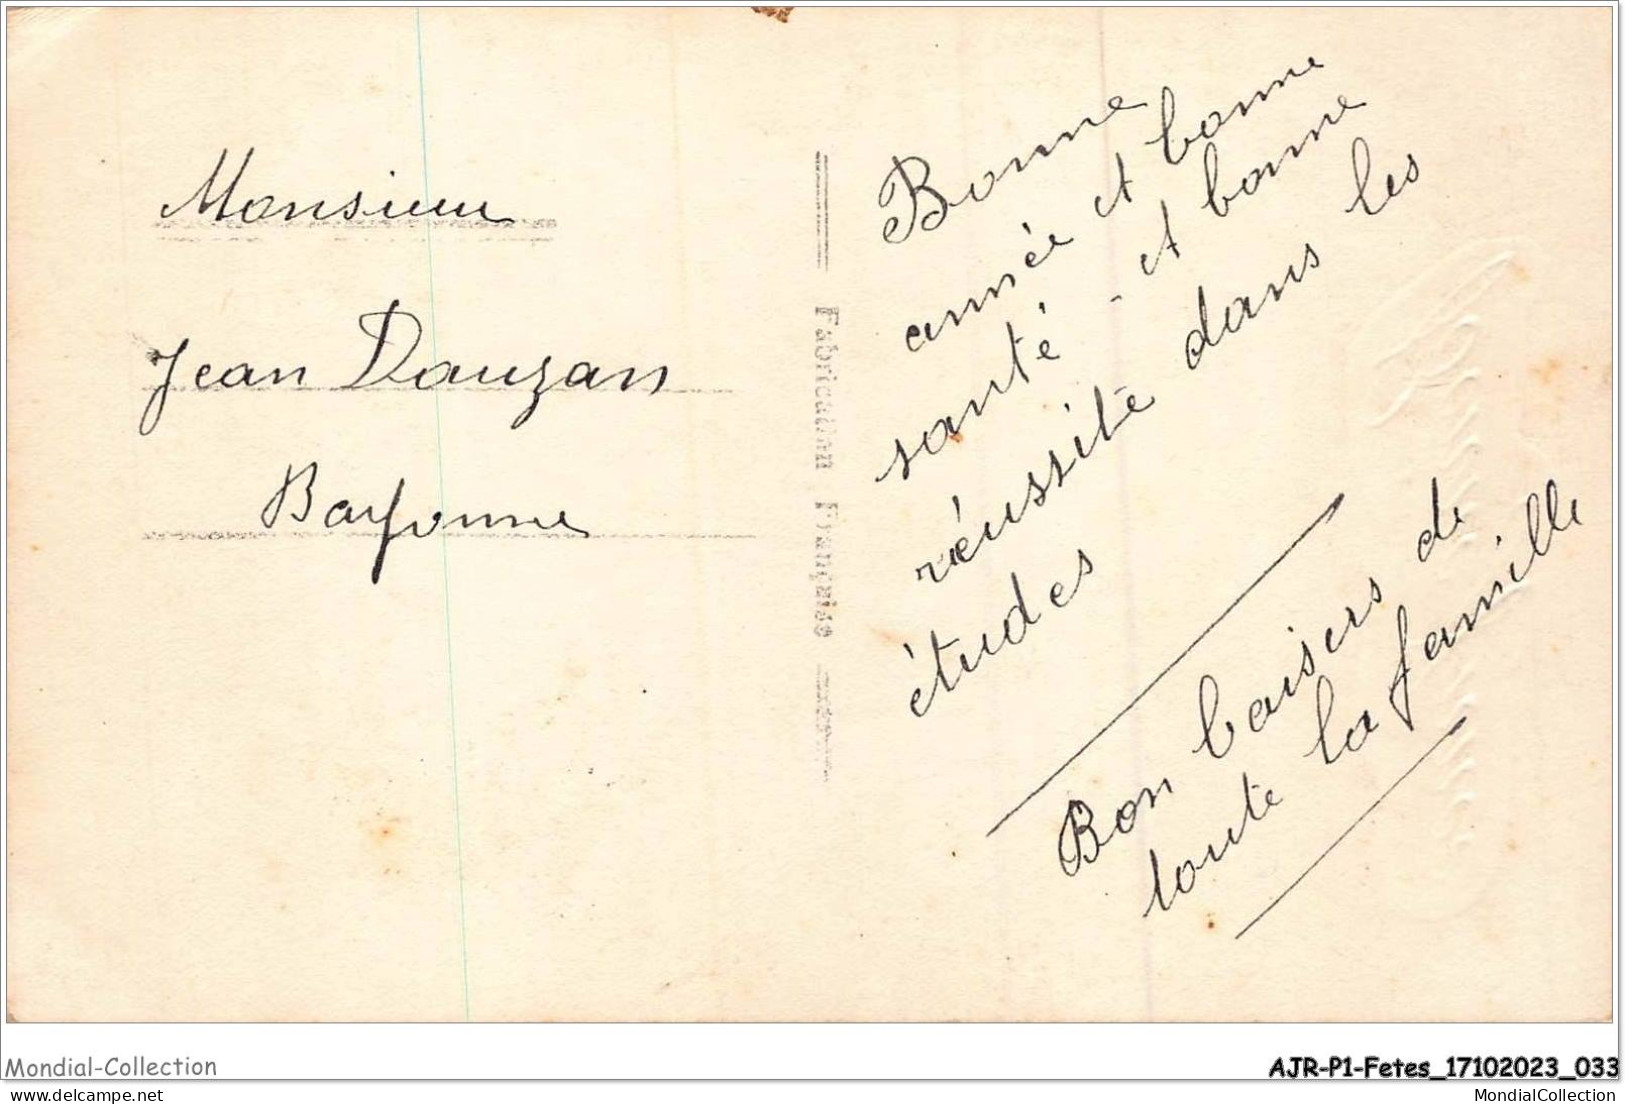 Monsieur
Jean Dauzan
Bayonne
Fabrication Française
Bonne
année et bonne
santé - et bonne
réussite dans les
études
Bon baisers de
toute la famille
Mondial-Collection
AJR-P1-Fetes_17102023_033
delcampe.net
MondialCollection